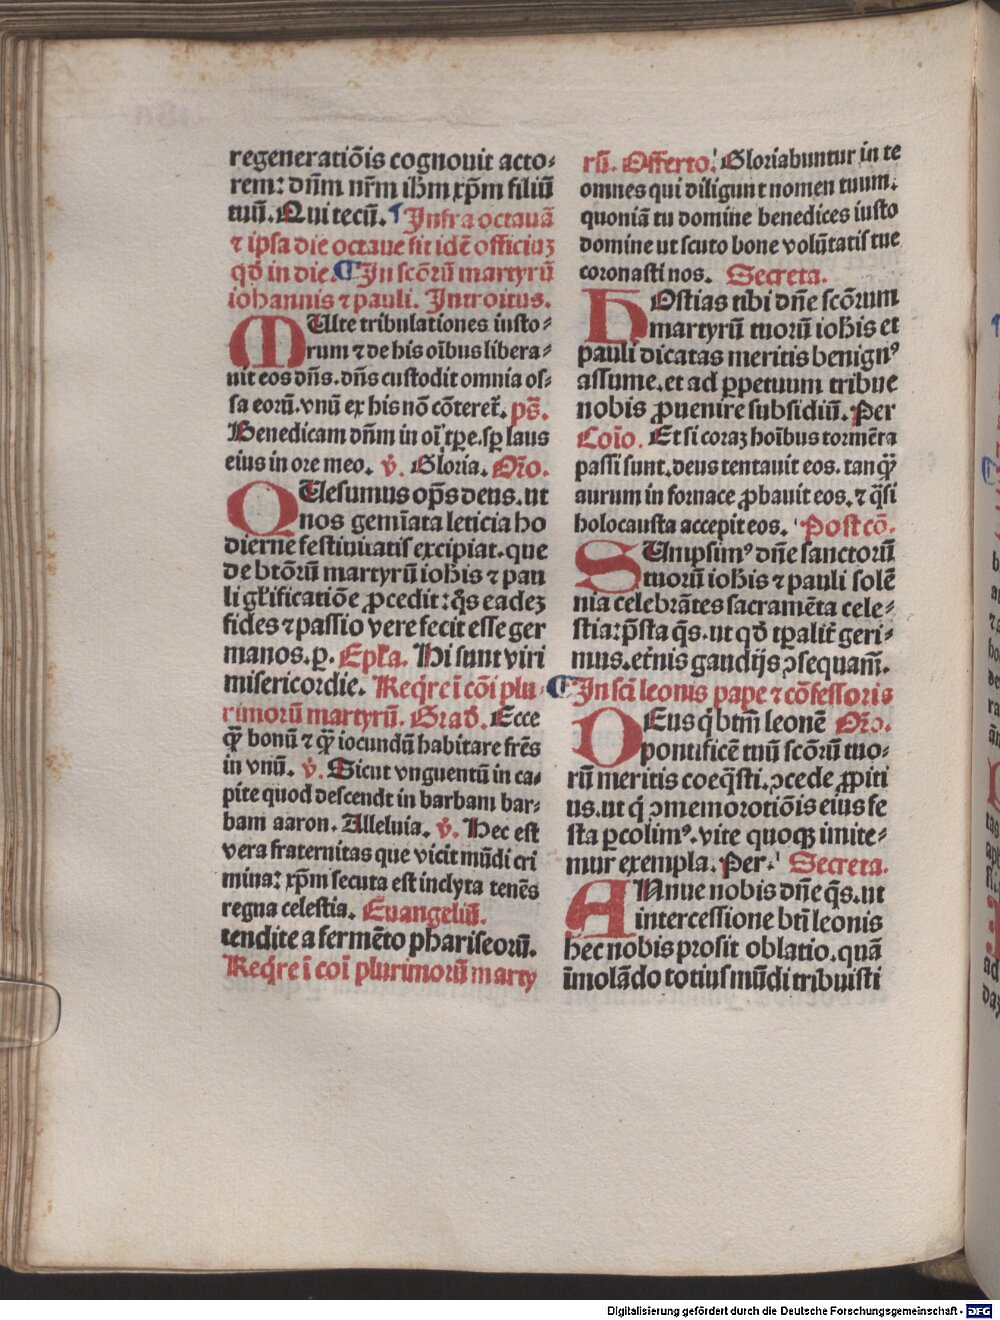 regeneratiōis cognouit acto⸗
rem: dn̄m nr̄m ih̄m xp̄m filiū
tuū. Qui tecū. ¶ Infra octauā
⁊ ipsa die octaue fit idē officiuꝫ
qd̄ in die. ¶ In scōrū martyrū
iohannis ⁊ pauli. Introitus.
MUlte tribulationes iusto⸗
rum ⁊ de his oībus libera⸗
uit eos dn̄s. dn̄s custodit omnia os⸗
sa eorū. vnū ex his nō cōteret̄. ps̄.
Benedicam dn̄m in oī tp̄e. sp̄ laus
eius in ore meo. v̄. Gloria. Or̄o.
QUesumus op̄s deus. ut
nos gemīata leticia ho
dierne festiuitatis excipiat. que
de btōrū martyrū ioh̄is ⁊ pau
li gl̄ificatiōe ꝓcedit: q̄s eadeꝫ
fides ⁊ passio vere fecit esse ger
manos. p. Epl̄a. Hi sunt viri
misericordie. Reqr̄e ī cōi plu⸗
rimorū martyrū. Grad̄. Ecce
q̄ꝫ bonū ⁊ q̄ꝫ iocundū habitare fr̄es
in vnū. v̄. Sicut vnguentū in ca⸗
pite quod descendt in barbam bar⸗
bam aaron. Alleluia. v̄. Hec est
vera fraternitas que vicit mūdi cri
mina: xp̄m secuta est inclyta tenēs
regna celestia. Euangeliū.
tendite a fermēto phariseorū.
Reqr̄e ī coī plurimorū marty
rū. Offerto. Gloriabuntur in te
omnes qui diligunt nomen tuum.
quoniā tu domine benedices iusto
domine ut scuto bone volūtatis tue
coronasti nos. Secreta.
HOstias tibi dn̄e scōrum
martyrū tuorū ioh̄is et
pauli dicatas meritis benignꝰ
assume. et ad ꝑpetuum tribue
nobis ꝓuenire subsidiū. Per
Coīo. Et si coraꝫ hoībus tormēta
passi sunt. deus tentauit eos. tanq̄ꝫ
aurum in fornace ꝓbauit eos. ⁊ q̄si
holocausta accepit eos. Post cō.
SUmpsimꝰ dn̄e sanctorū
tuorū ioh̄is ⁊ pauli solē
nia celebrātes sacramēta cele⸗
stia: p̄sta q̄s. ut qd̄ tp̄alit̄ geri⸗
mus. et̄nis gaudijs ↄsequam̄.
¶ In sc̄i leonis pape ⁊ cōfessoris
DEus q̇ btm̄ leonē Or̄o.
pontificē tuū scōrū tuo⸗
rū meritis coeq̄sti. ↄcede ꝓpiti
us. ut q̇ ↄmemorotiōis eius fe
sta ꝑcolimꝰ. vite quoqꝫ imite⸗
mur exempla. Per. Secreta.
ANnue nobis dn̄e q̄s. ut
intercessione bt̄i leonis
hec nobis prosit oblatio. quā
īmolādo totius mūdi tribuisti
Digitalisierung gefördert durch die Deutsche Forschungsgemeinschaft - DFG